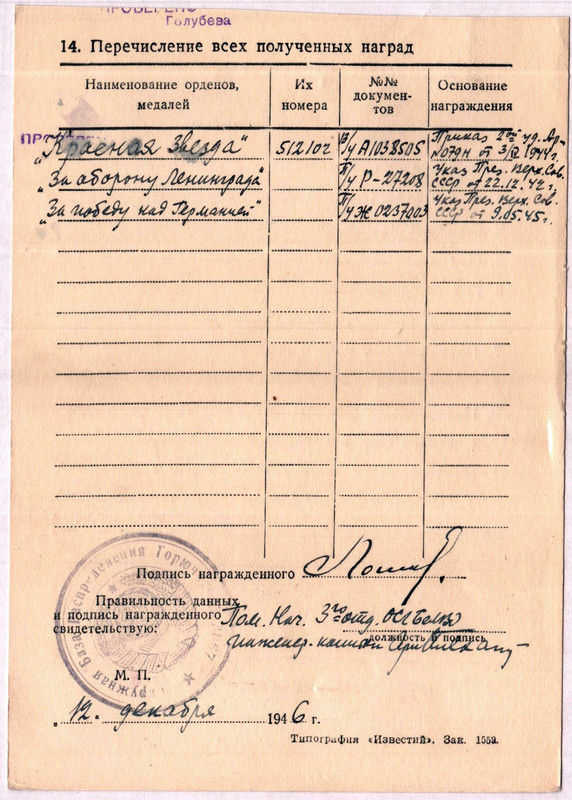 ПРОВЕРЕНО
Голубева
14. Перечисление всех полученных наград
Наименование орденов, медалей
Их номера
№№ документов
Основание награждения
ПРОВЕРЕН
„Красная Звезда" 512102 А1038505 Приказ 2ой уд. Ар.
№079н от 3/ 1944г.
„За оборону Ленинграда" Р-27208 Указ През. Верх. Сов.
СССР от 22.12.42г.
„За победу над Германией" Ж 0237003 Указ През. Верх. Сов.
СССР от 9.05.45г.
Подпись награжденного
Правильность данных
и подпись награжденного
свидетельствую: Пом. Нач. 3го отд.
должность и подпись
инженер-капитан
М. П.
„12." декабря 1946 г.
Типография «Известий». Зак. 1559.